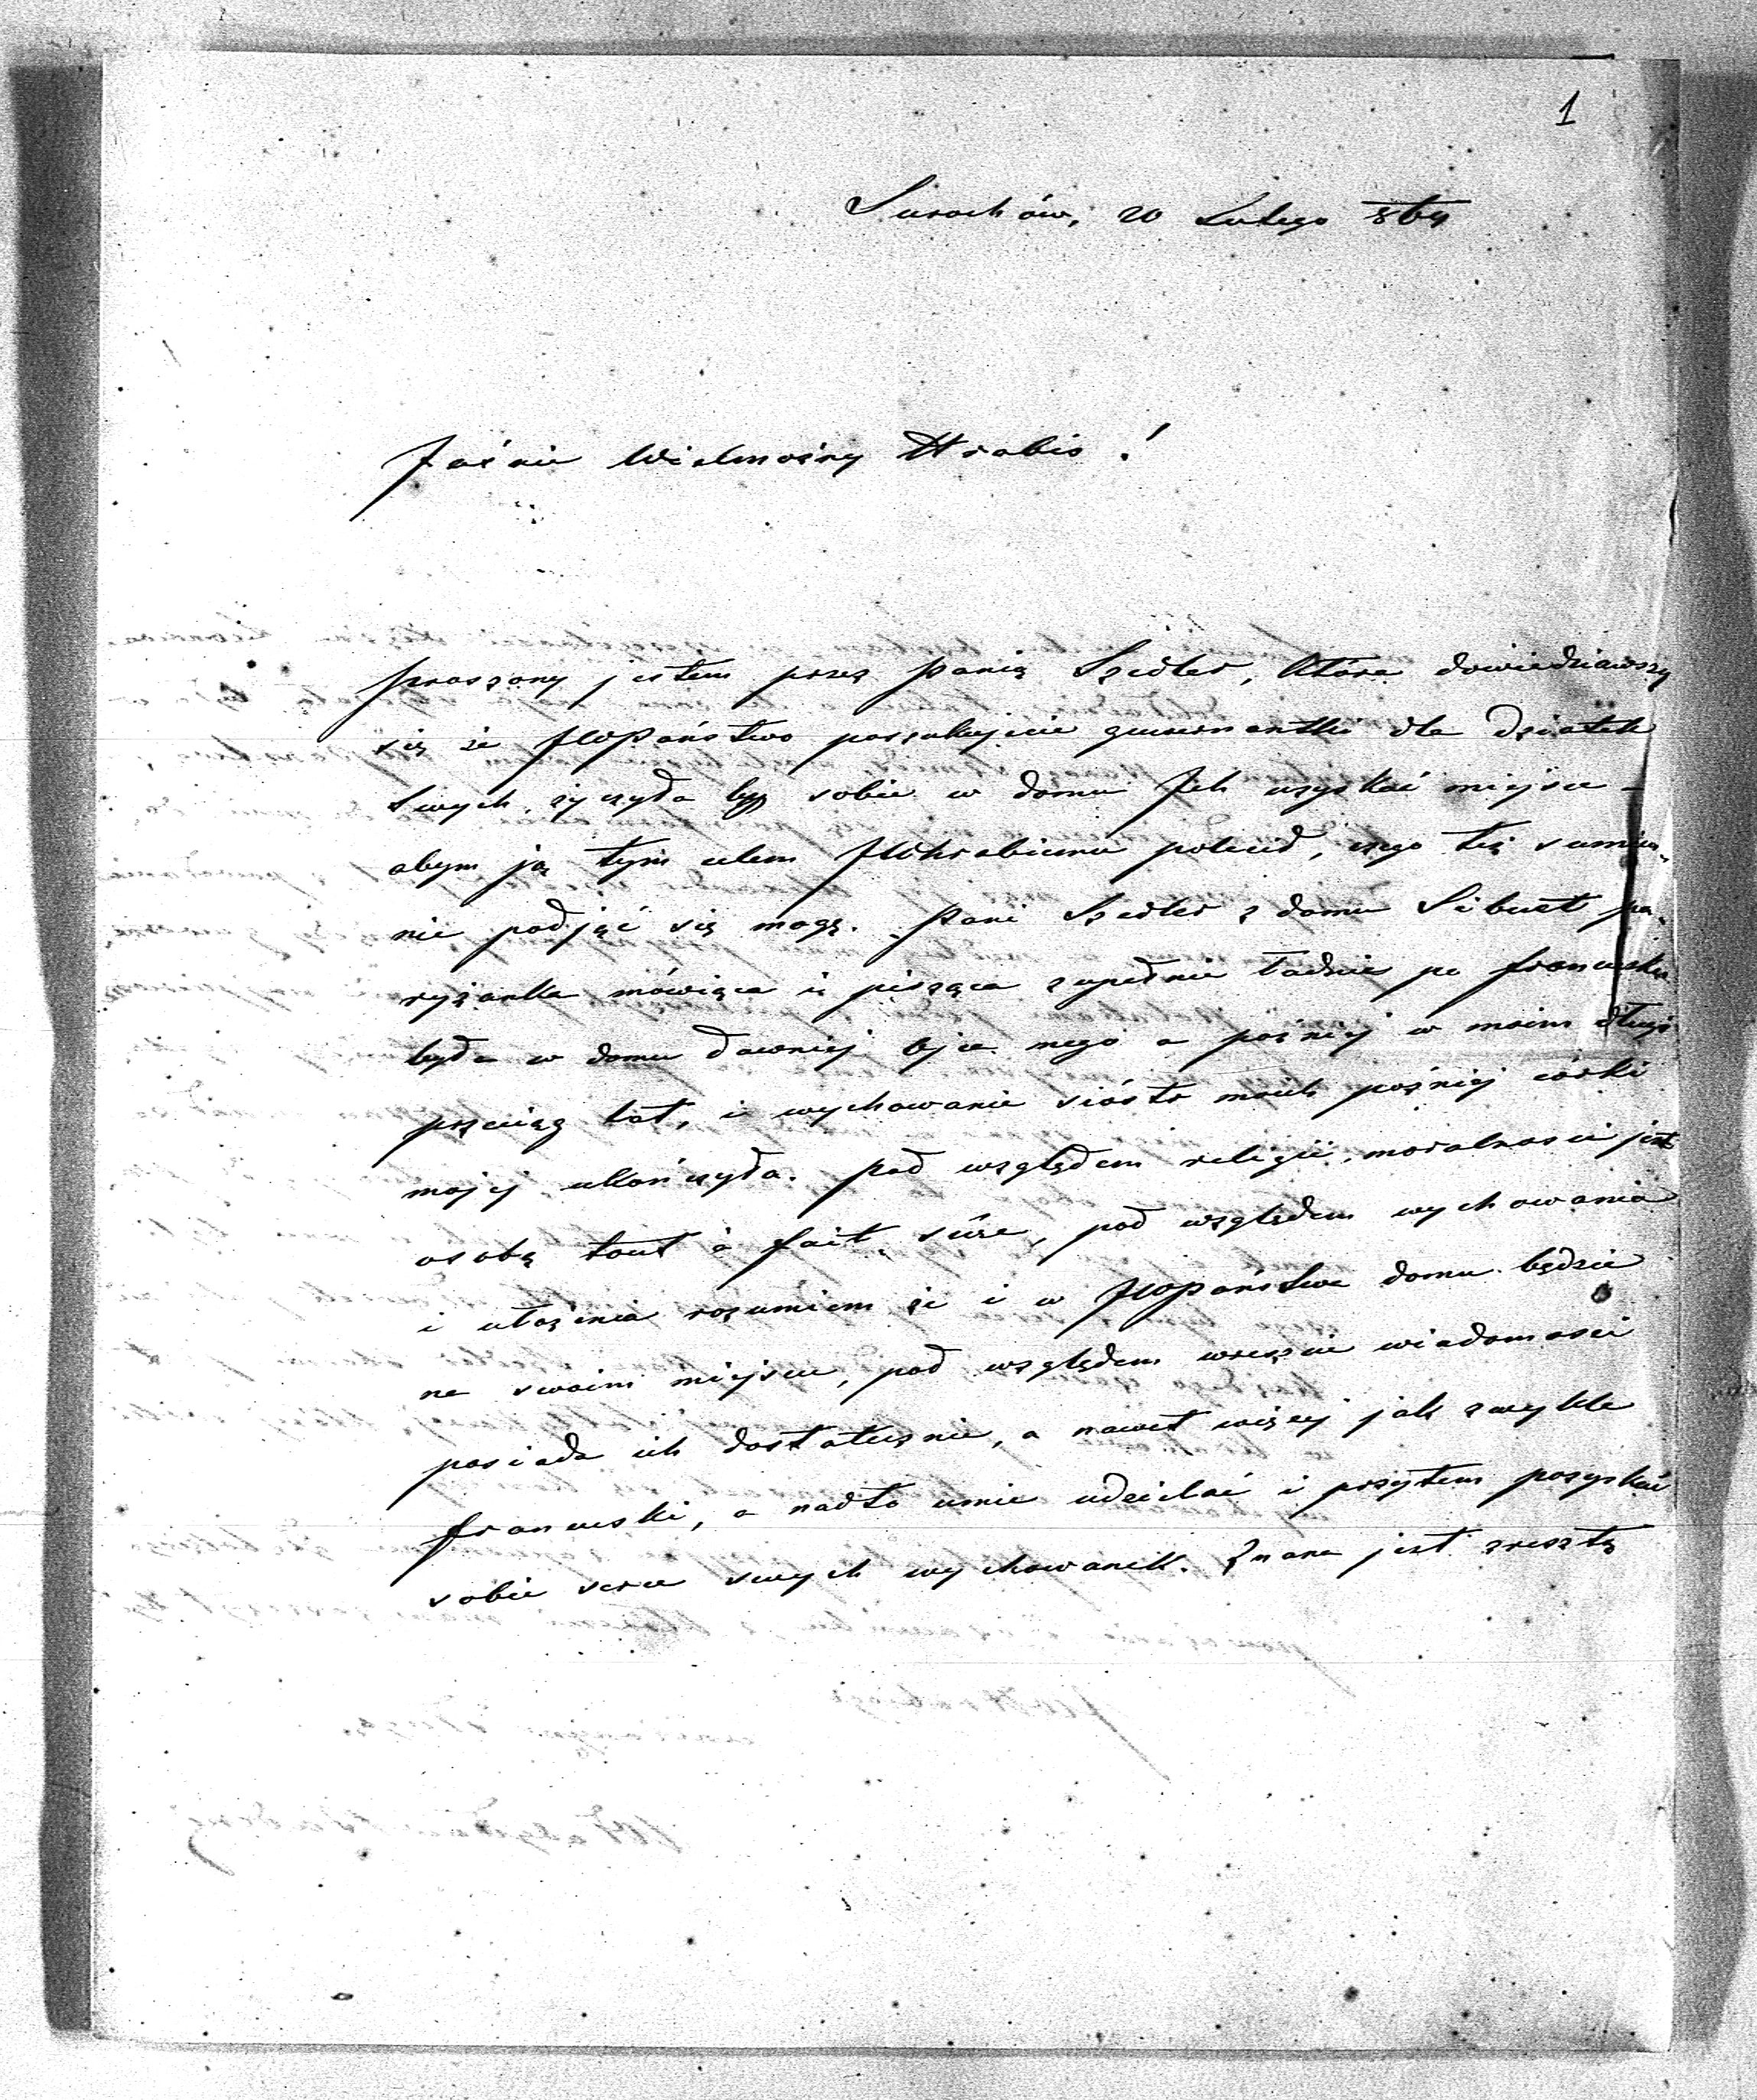 1
Surochów, 20 Lutego 864
Jaśnie Wielmożny Hrabio!
proszony jestem przez Panią Szedler, która dowiedziawszy
się że JWPaństwo poszukujecie guwernantki dla dziatek
Swych, życzyła by sobie w domu Ich uzyskać miejsce –
abym ją tym celem JWHrabiemu polecił, czego też sumien-
nie podjąć się mogę. Pani Szedler z domu Sibuet pa-
ryżanka mówiąca i pisząca zupełnie ładnie po francusku
była w domu dawniej ojca mego a poźniej w moim długi
przeciąg lat, i wychowanie sióstr moich poźniej córki
mojej ukończyła. Pod względem religii, moralności jest
osobą tout à fait sûre, pod względem wychowania
i ułożenia rozumiem że i w JWPaństwa domu będzie
na swoim miejscu, pod względem wreszcie wiadomości
posiada ich dostatecznie, a nawet więcej jak zwykle
francuski, a nadto umie udzielać i przytem pozyskać
sobie serca swych wychowanek. Znana jest zresztą